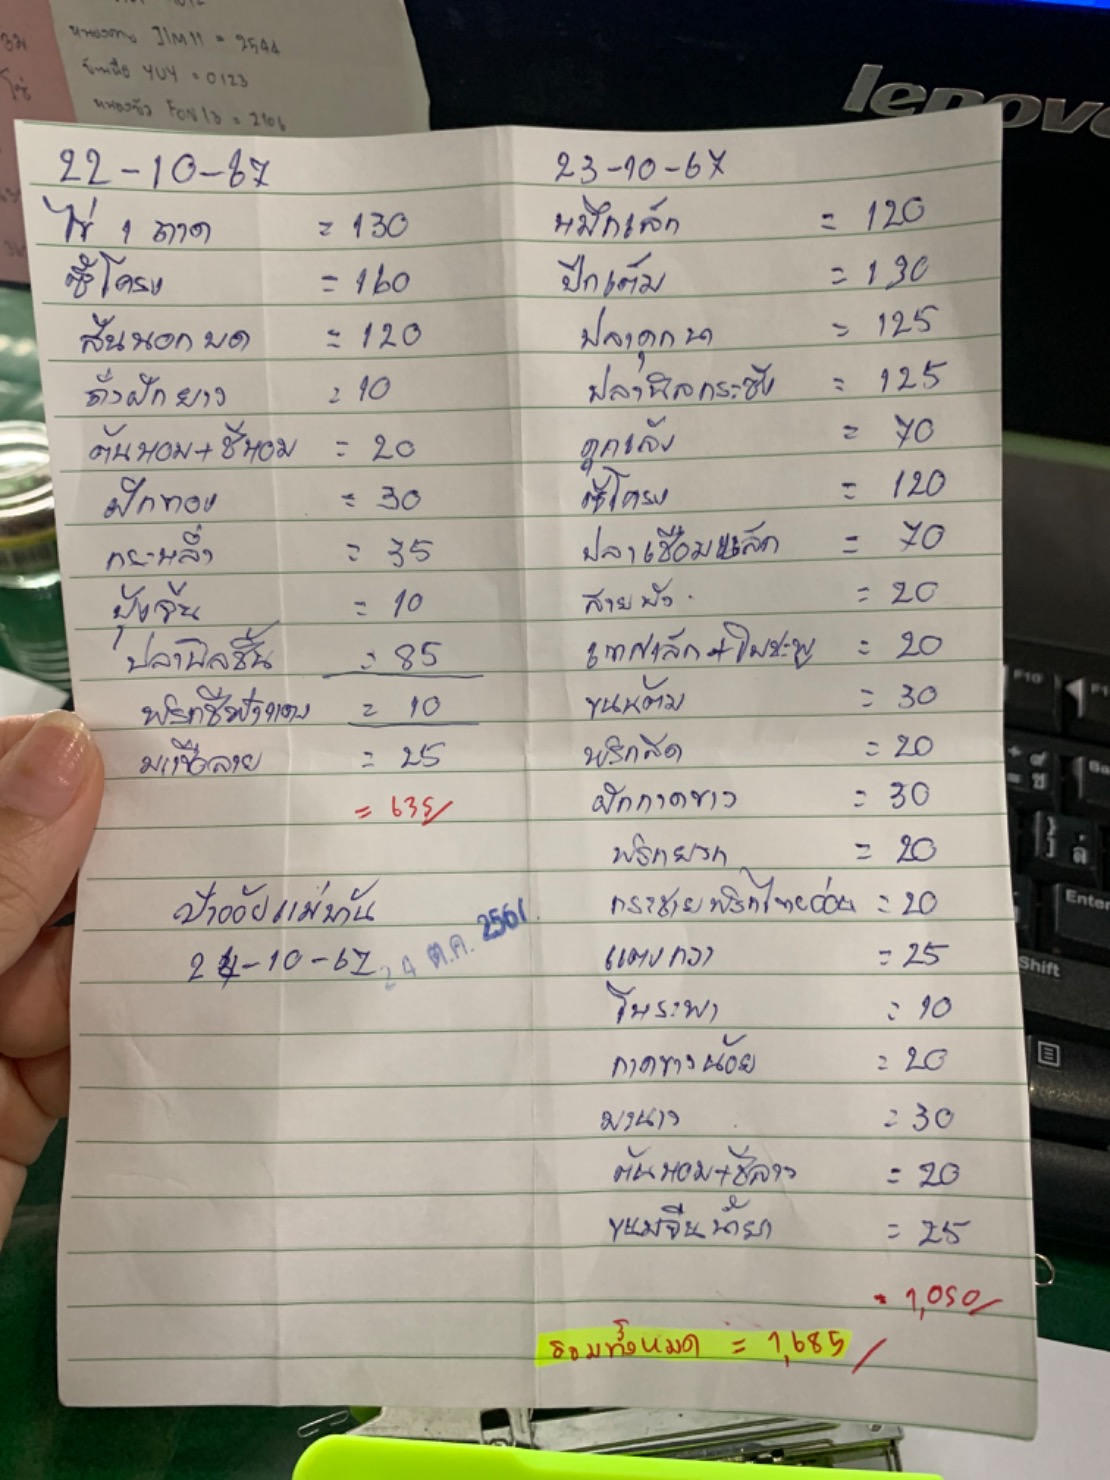 JIMI1 = 2544
YUY = 0123
FON13 = 2106
lenovo
22-10-67
ไข่ 1 ถาด = 130
ซี่โครง = 160
สันนอกบด = 120
ถั่วฝักยาว = 10
ต้นหอม+ชีหอม = 20
ฝักทอง = 30
กะหล่ำ = 35
ปุ้งจีน = 10
ปลานิลชิ้น = 85
พริกชี้ฟ้าแดง = 10
มะเขือลาย = 25
= 635/
ป้าอ้อยแม่บ้าน
24-10-67
24 ต.ค. 2561
23-10-67
หมึกเล็ก = 120
ปีกเต็ม = 130
ปลาดุกนา = 125
ปลานิลกระชัง = 125
ลูกเล้ง = 70
ซี่โครง = 120
ปลาเชื่อมเล็ก = 70
สายบัว = 20
เทศเล็ก+ใบชะพู = 20
ขนุนต้ม = 30
พริกสด = 20
ฝักกาดขาว = 30
พริกยวก = 20
กระชายพริกไทยอ่อน = 20
แตงกวา = 25
โหระพา = 10
กาดขาวน้อย = 20
มะนาว = 30
ต้นหอม+ชีลาว = 20
ขนมจีนน้ำยา = 25
= 1,050/
รวมทั้งหมด = 1,685/
F10
Enter
Shift